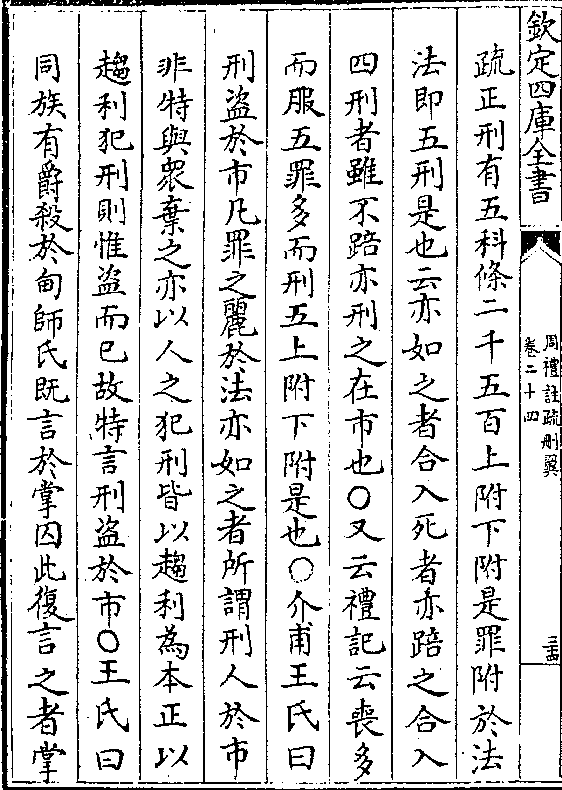 欽定四庫全書
周禮註疏刪翼
卷二十四
三十四
疏正刑有五科條二千五百上附下附是罪附於法
法即五刑是也云亦如之者合入死者亦踣之合入
四刑者雖不踣亦刑之在市也○又云禮記云喪多
而服五罪多而刑五上附下附是也○介甫王氏曰
刑盜於市凡罪之麗於法亦如之者所謂刑人於市
非特與衆棄之亦以人之犯刑皆以趨利為本正以
趨利犯刑則惟盜而已故特言刑盜於市○王氏曰
同族有爵殺於甸師氏既言於掌囚此復言之者掌